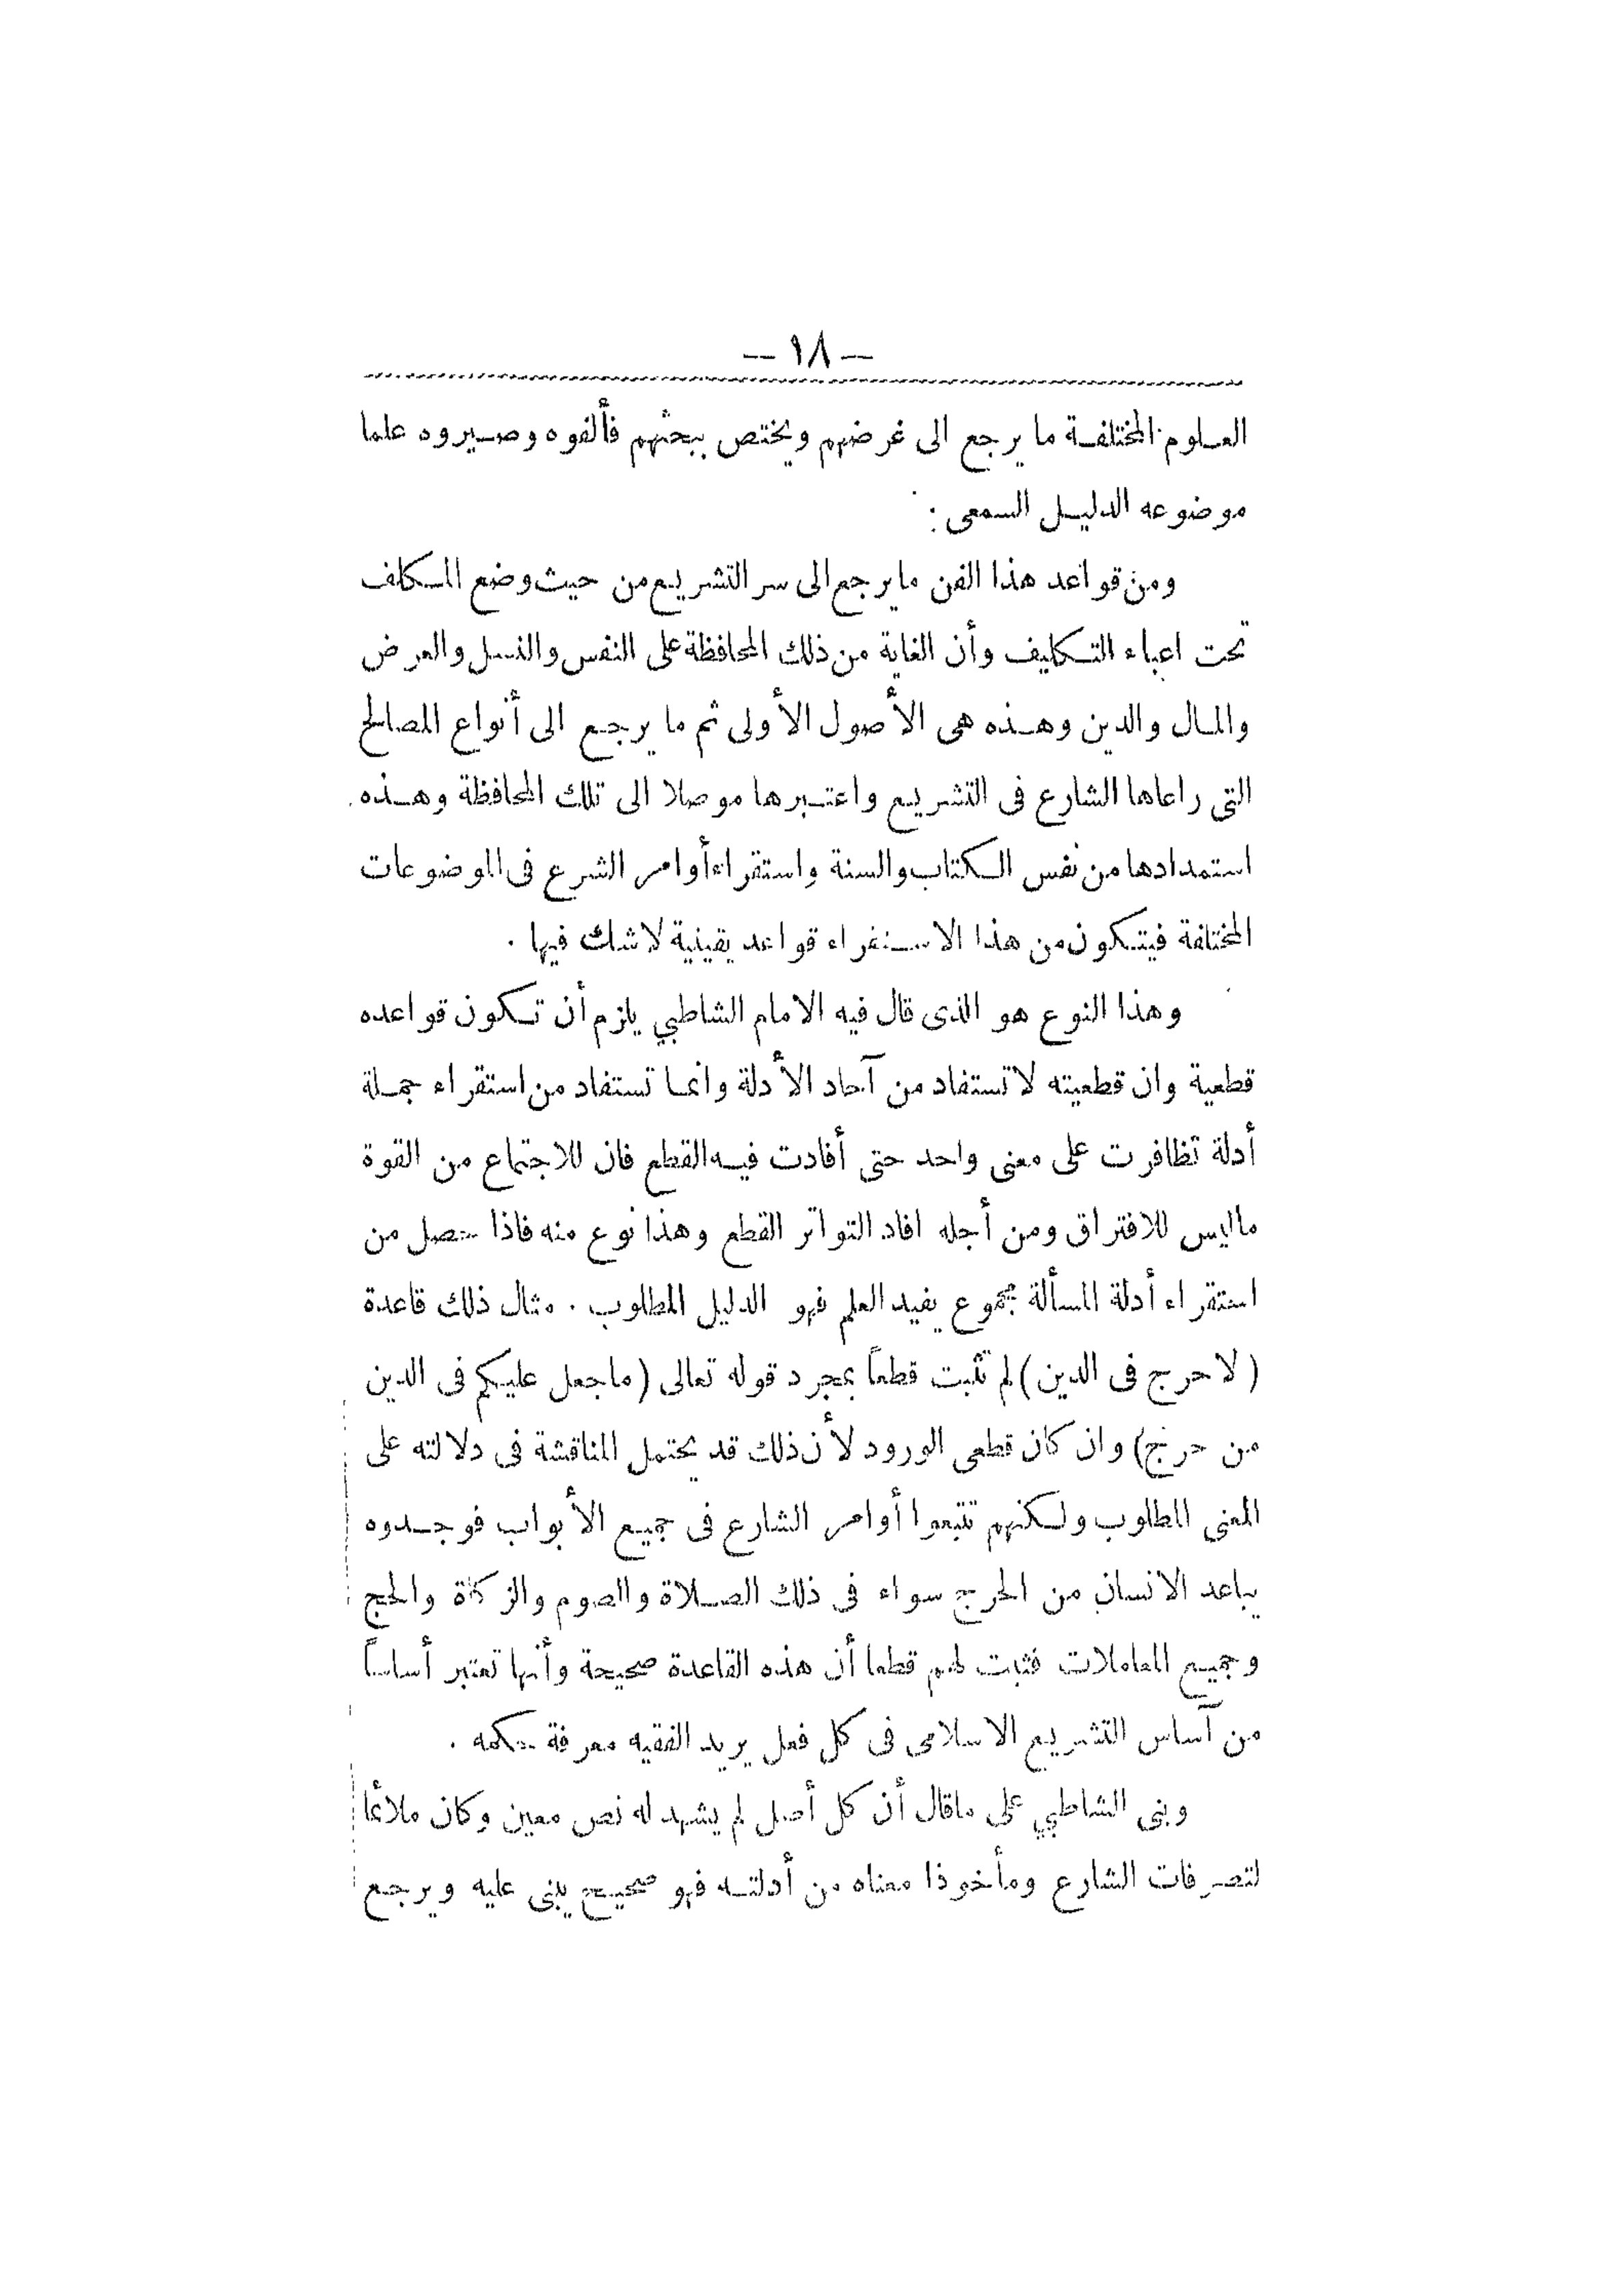 — ١٨ —
العلوم المختلفة ما يرجع الى غرضهم ويختص ببحثهم فألفوه وصيروه علما
موضوعه الدليل السمعى :
ومن قواعد هذا الفن ما يرجع الى سر التشريع من حيث وضع المكلف
تحت اعباء التكليف وأن الغاية من ذلك المحافظة على النفس والنسل والعرض
والمال والدين وهذه هى الأصول الأولى ثم ما يرجع الى أنواع المصالح
التى راعاها الشارع فى التشريع واعتبرها موصلا الى تلك المحافظة وهذه
استمدادها من نفس الكتاب والسنة واستقراء أوامر الشرع فى الموضوعات
المختلفة فيتكون من هذا الاستقراء قواعد يقينية لا شك فيها .
وهذا النوع هو الذى قال فيه الامام الشاطبي يلزم أن تكون قواعده
قطعية وان قطعيته لا تستفاد من آحاد الأدلة وانما تستفاد من استقراء جملة
أدلة تظافرت على معنى واحد حتى أفادت فيه القطع فان للاجتماع من القوة
ما ليس للافتراق ومن أجله افاد التواتر القطع وهذا نوع منه فاذا حصل من
استقراء أدلة المسألة مجموع يفيد العلم فهو الدليل المطلوب . مثال ذلك قاعدة
( لا حرج فى الدين ) لم تثبت قطعاً بمجرد قوله تعالى ( ما جعل عليكم فى الدين
من حرج) وان كان قطعى الورود لأن ذلك قد يحتمل المناقشة فى دلالته على
المعنى المطلوب ولكنهم تتبعوا أوامر الشارع فى جميع الأبواب فوجدوه
يباعد الانسان من الحرج سواء فى ذلك الصلاة والصوم والزكاة والحج
وجميع المعاملات فثبت لهم قطعا أن هذه القاعدة صحيحة وأنها تعتبر أساساً
من آساس التشريع الاسلامى فى كل فعل يريد الفقيه معرفة حكمه .
وبنى الشاطبي على ما قال أن كل أصل لم يشهد له نص معين وكان ملائما
لتصرفات الشارع ومأخوذا معناه من أدلته فهو صحيح يبنى عليه ويرجع